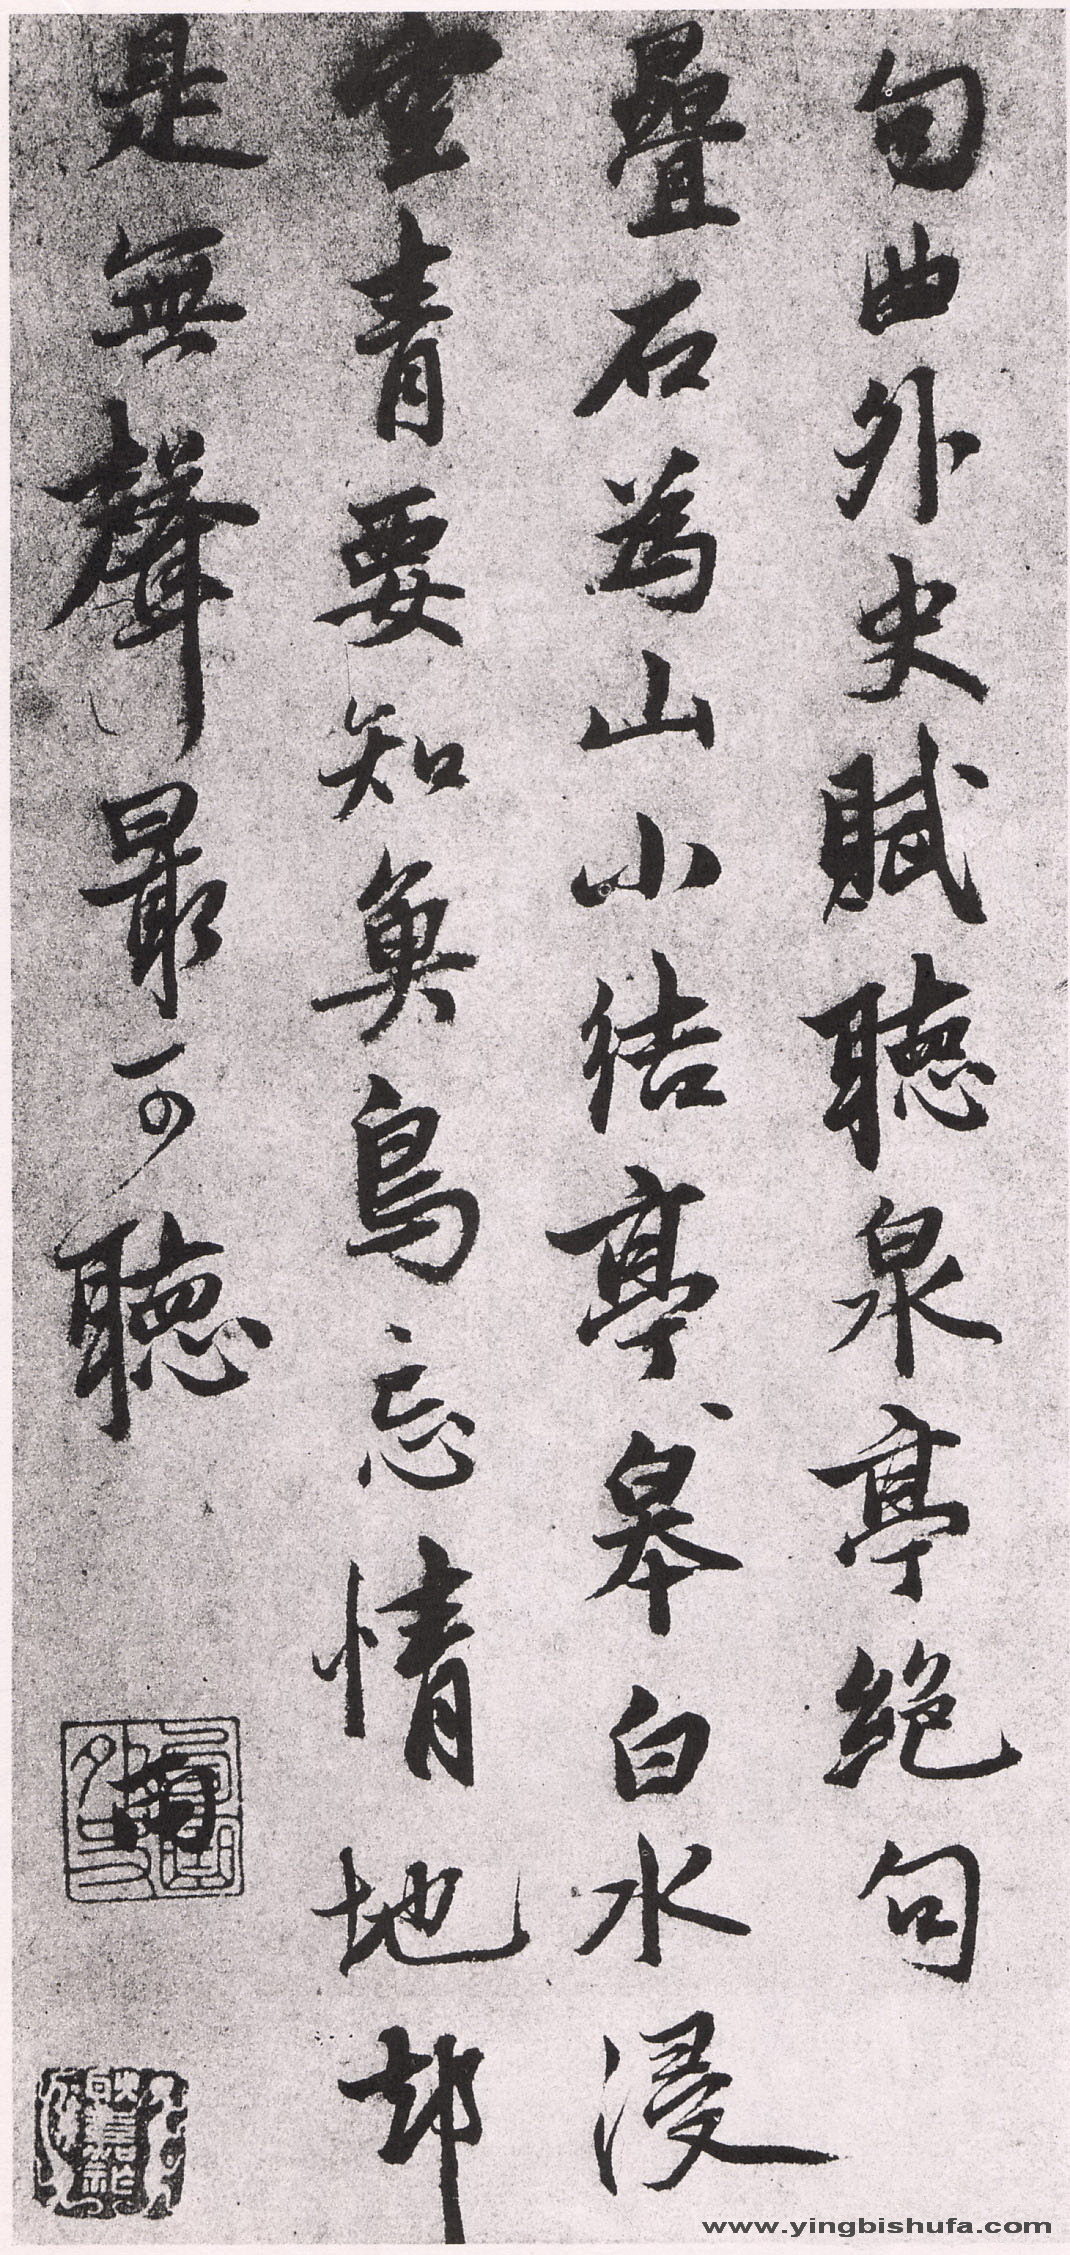 句曲外史賦聽泉亭絕句
疊石為山小結亭皋白水浸
空青要知魚鳥忘情地却
是無聲最可聽
雨
www.yingbishufa.com